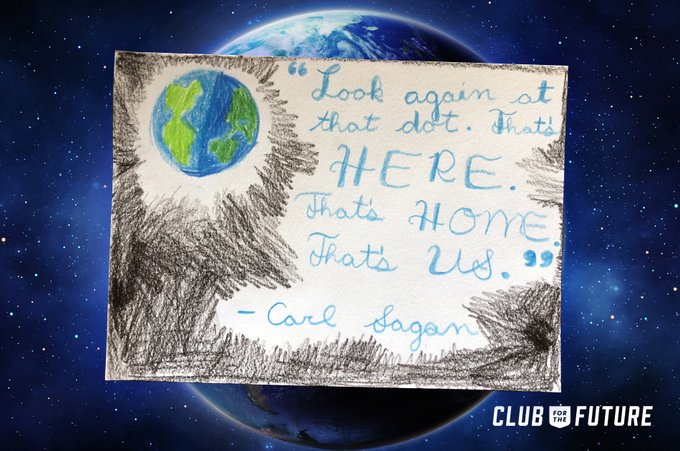 “Look again at
that dot. That's
HERE.
That's HOME.
That's US.”
- Carl Sagan
CLUB FOR THE FUTURE